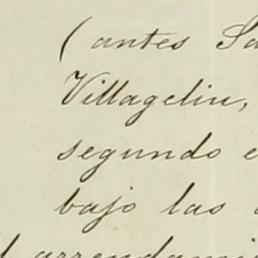 ( antes Sa
Villageliu,
segundo e
bajo las
arrendami